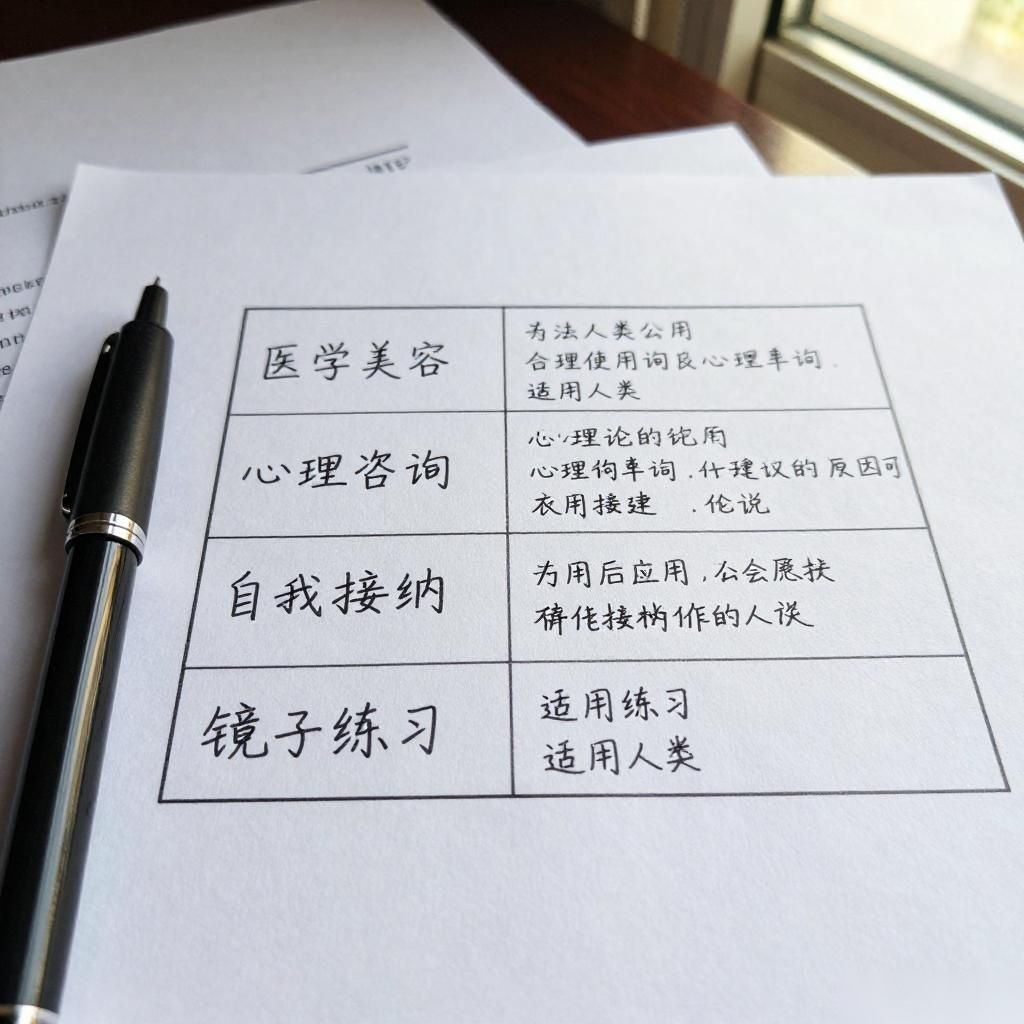 医学美容
为法人类公用
合理使用询及心理车询.
适用人类
心理咨询
心理论的 用
心理 车询 .什建议的 原因可
衣用接建 .伦说
自我接纳
为用后应用,公会
接 作的人
镜子练习
适用练习
适用人类